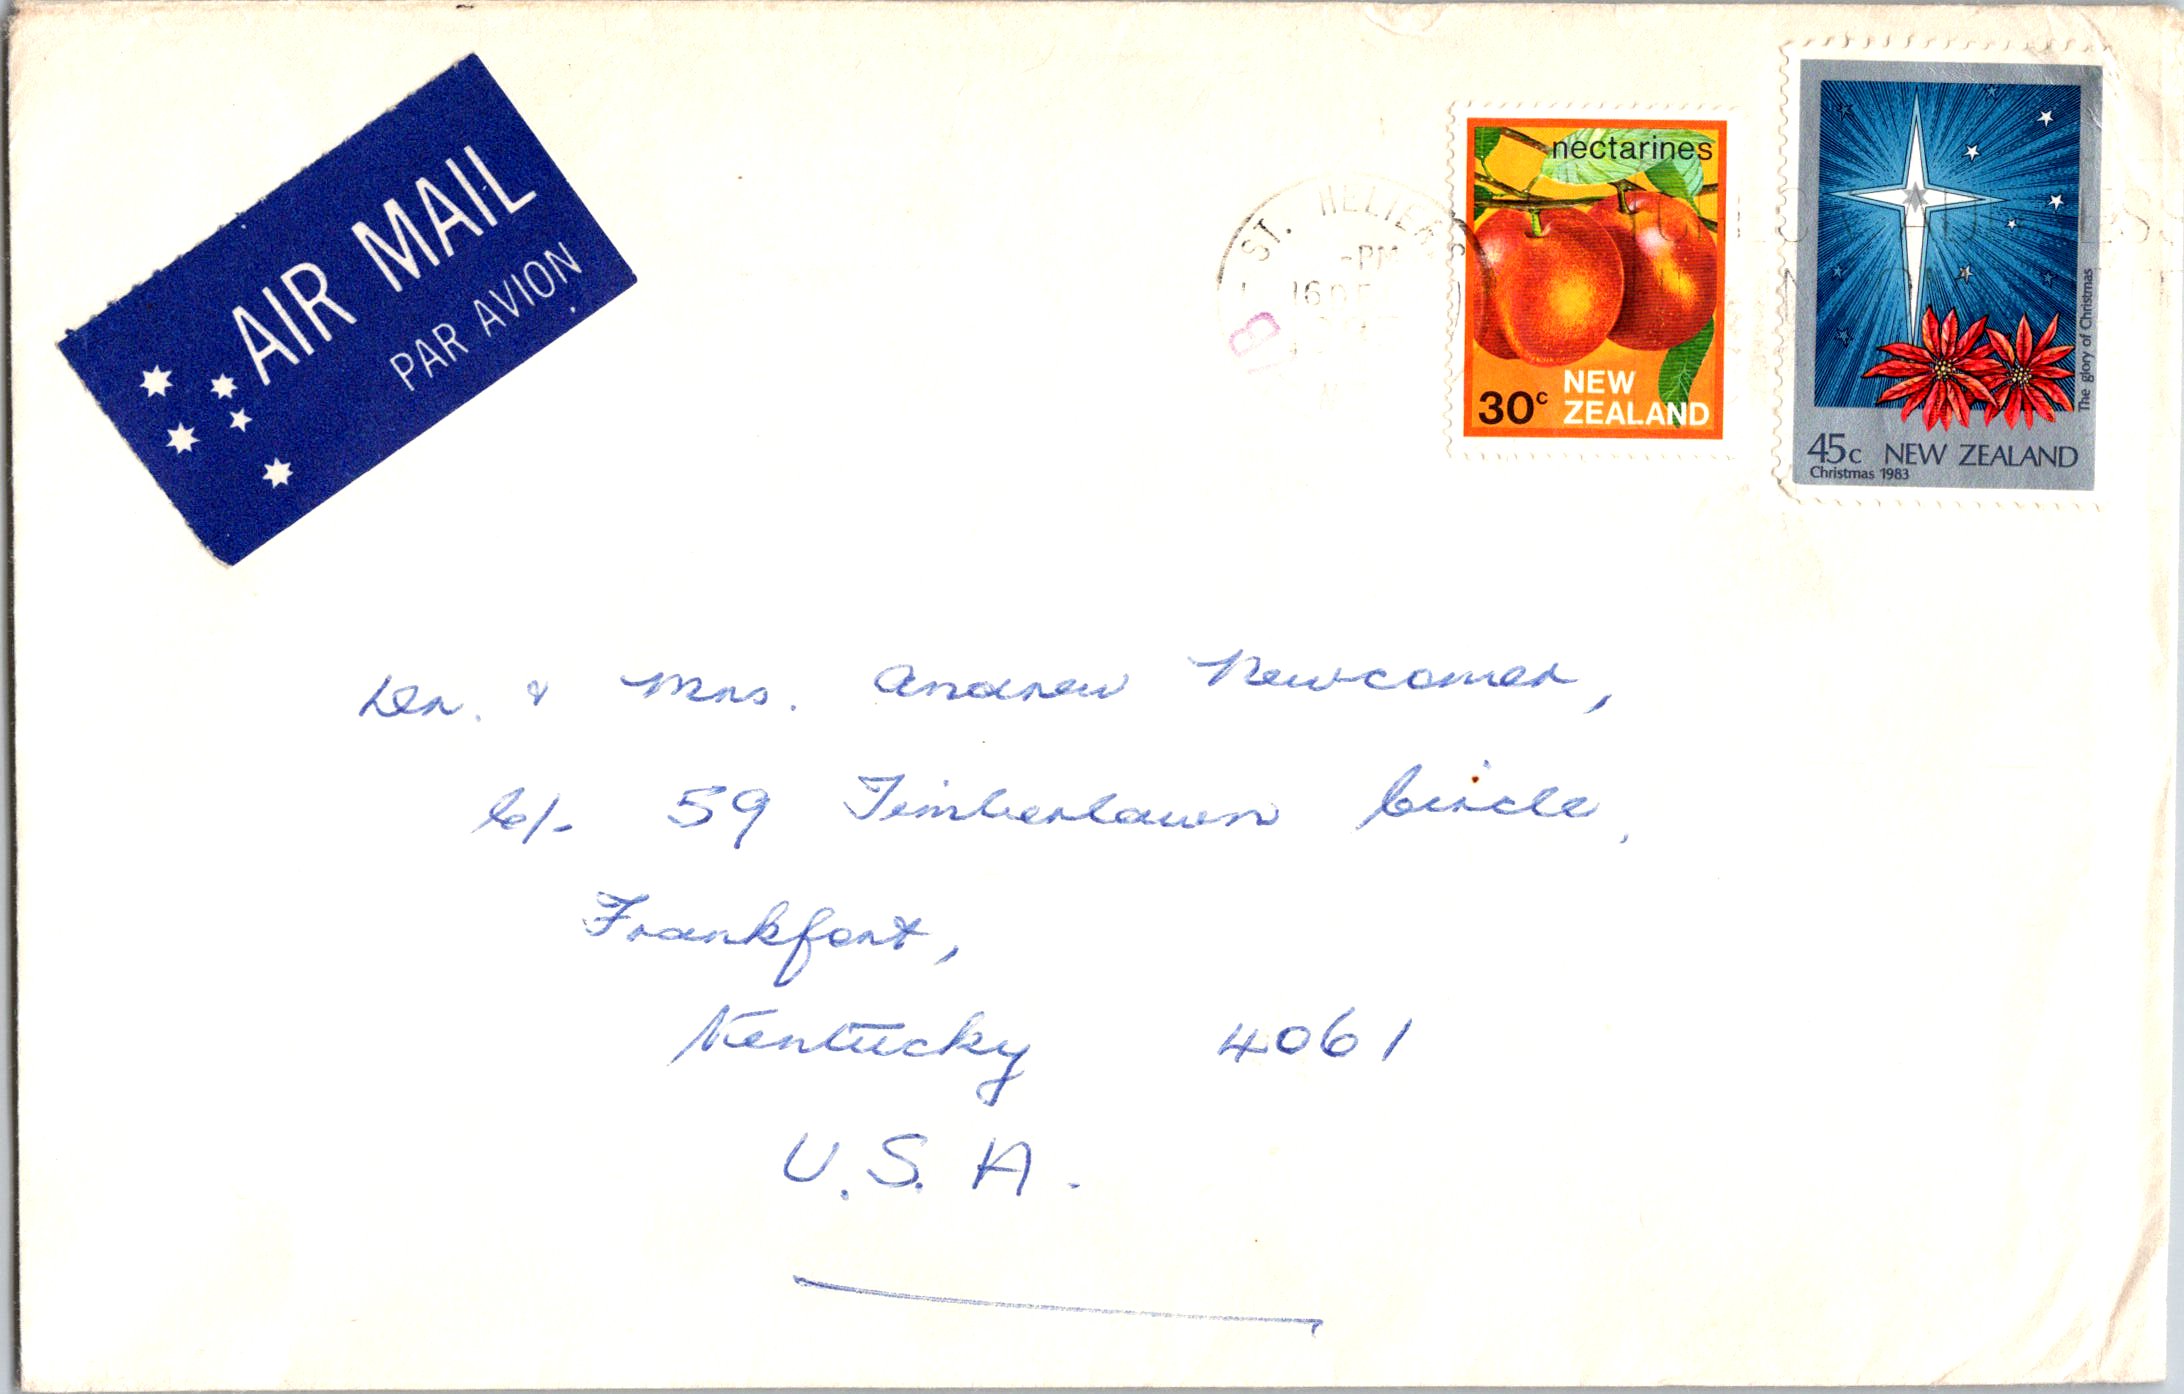 AIR MAIL
PAR AVION
ST. HELIERS
-PM
16
nectarines
30c NEW
ZEALAND
The glory of Christmas
45c NEW ZEALAND
Christmas 1983
Dr. & Mrs. Andrew Newcomer,
C/- 59 Timberlawn Circle,
Frankfort,
Kentucky 4061
U.S.A.